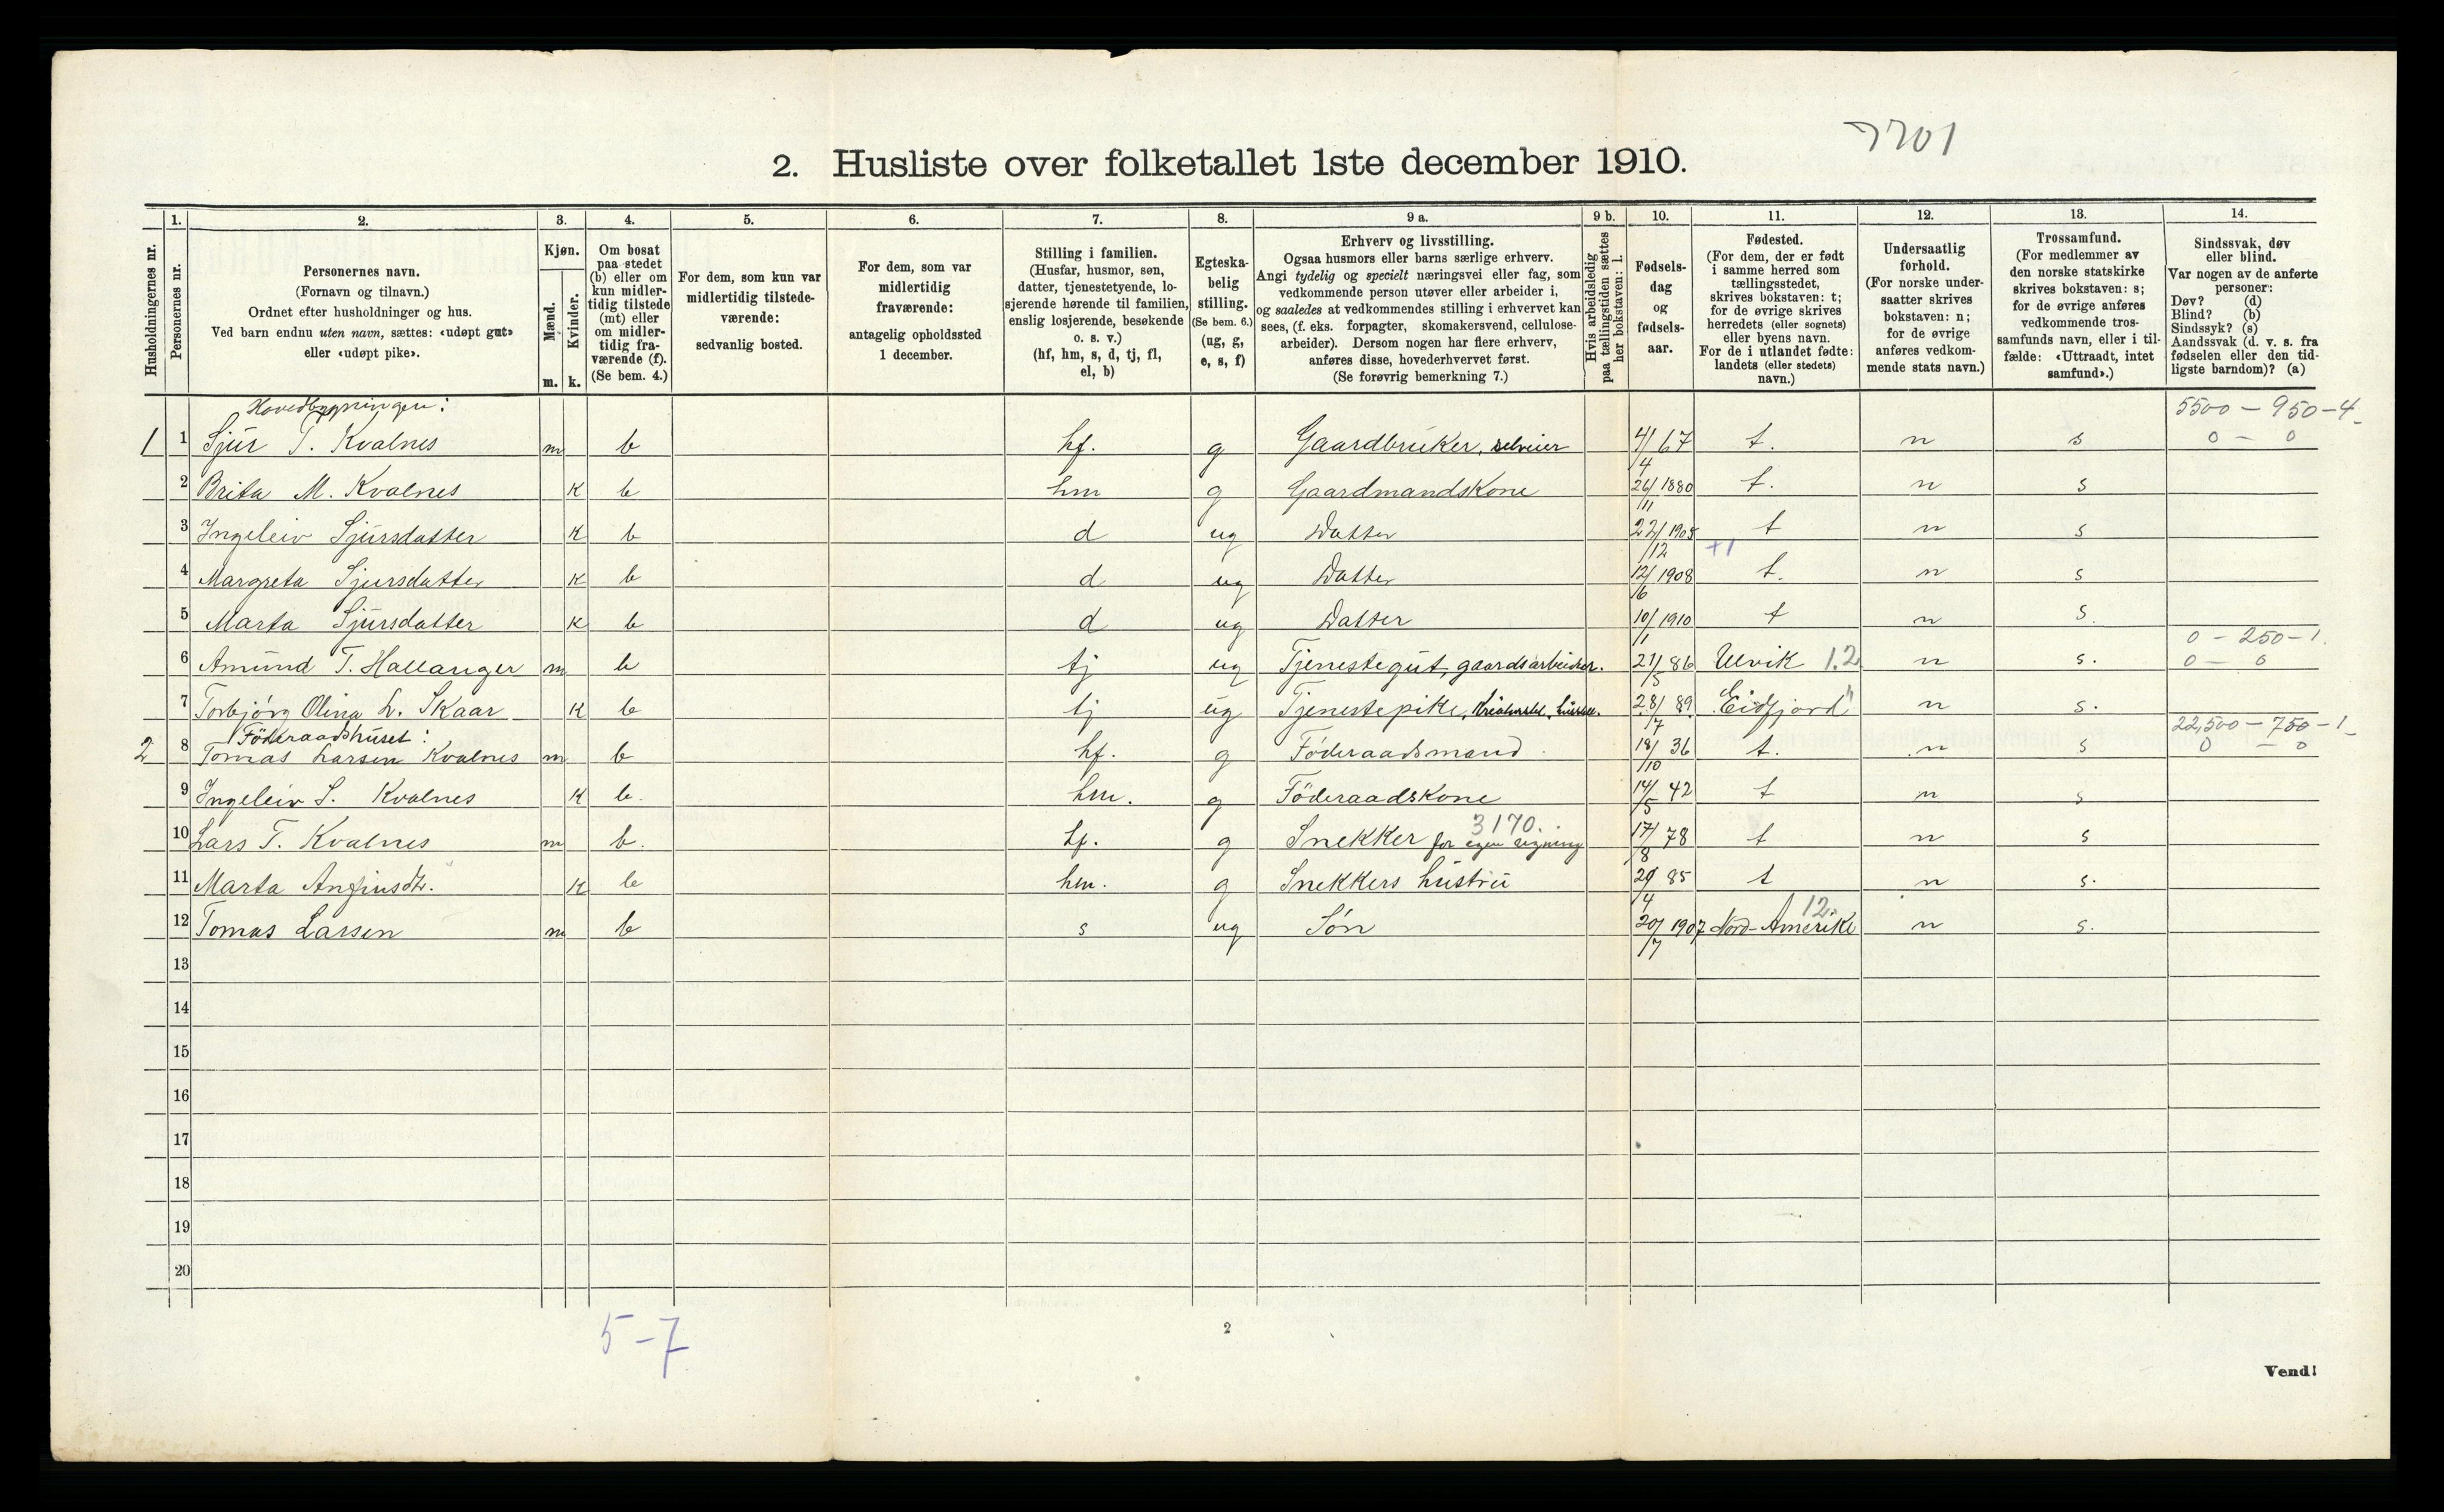 7701
2. Husliste over folketallet 1ste december 1910.
Husholdningernes nr.
1. Personernes nr.
2. Personernes navn.
(Fornavn og tilnavn.)
Ordnet efter husholdninger og hus.
Ved barn endnu uten navn, sættes: «udøpt gut»
eller «udøpt pike».
3. Kjøn.
Mænd. m.
Kvinder. k.
4. Om bosat
paa stedet
(b) eller om
kun midler-
tidig tilstede
(mt) eller
om midler-
tidig fra-
værende (f).
(Se bem. 4.)
5. For dem, som kun var
midlertidig tilstede-
værende:
sedvanlig bosted.
6. For dem, som var
midlertidig
fraværende:
antagelig opholdssted
1 december.
7. Stilling i familien.
(Husfar, husmor, søn,
datter, tjenestetyende, lo-
sjerende hørende til familien,
enslig losjerende, besøkende
o. s. v.)
(hf, hm, s, d, tj, fl,
el, b)
8. Egteska-
belig
stilling.
(Se bem. 6.)
(ug, g,
e, s, f)
9 a. Erhverv og livsstilling.
Ogsaa husmors eller barns særlige erhverv.
Angi tydelig og specielt næringsvei eller fag, som
vedkommende person utøver eller arbeider i,
og saaledes at vedkommendes stilling i erhvervet kan
sees, (f. eks. forpagter, skomakersvend, cellulose-
arbeider). Dersom nogen har flere erhverv,
anføres disse, hovederhvervet først.
(Se forøvrig bemerkning 7.)
9 b. Hvis arbeidsledig
paa tællingstiden sættes
her bokstaven: l.
10. Fødsels-
dag
og
fødsels-
aar.
11. Fødested.
(For dem, der er født
i samme herred som
tællingsstedet,
skrives bokstaven: t;
for de øvrige skrives
herredets (eller sognets)
eller byens navn.
For de i utlandet fødte:
landets (eller stedets)
navn.)
12. Undersaatlig
forhold.
(For norske under-
saatter skrives
bokstaven: n;
for de øvrige
anføres vedkom-
mende stats navn.)
13. Trossamfund.
(For medlemmer av
den norske statskirke
skrives bokstaven: s;
for de øvrige anføres
vedkommende tros-
samfunds navn, eller i til-
fælde: «Uttraadt, intet
samfund».)
14. Sindssvak, døv
eller blind.
Var nogen av de anførte
personer:
Døv? (d)
Blind? (b)
Sindssyk? (s)
Aandssvak (d. v. s. fra
fødselen eller den tid-
ligste barndom)? (a)
Hovedbygningen: 5500 - 950 - 4
1 1 Sjur T. Kvalnes m b hf. g Gaardbruker, selveier 4/4 67 t. n s 0 - 0
2 Brita M. Kvalnes K b hm g Gaardmandskone 26/11 1880 t. n s
3 Ingeleiv Sjursdatter K b d ug Datter 22/12 1905 t n s
+1
4 Margreta Sjursdatter K b d ug Datter 12/6 1908 t. n s
5 Marta Sjursdatter K b d ug Datter 10/1 1910 t n s.
0 - 250 - 1.
6 Amund T. Hallanger m b tj ug Tjenestegut, gaardsarbeider. 21/5 86 Ulvik 1.2 n s. 0 - 0
7 Torbjörg Olina L. Skaar K b tj ug Tjenestepike, 28/7 89 Eidfjord " n s.
Föderaadshuset: 22,500 - 750 - 1
2 8 Tomas Larsen Kvalnes m b hf. g Föderaadsmand 18/10 36 t. n s 0 - 0
9 Ingeleiv S. Kvalnes K b. hm. g Föderaadskone 14/5 42 t n s
3170.
10 Lars T. Kvalnes m b. hf. g Snekker for egen regning 17/8 78 t n s
11 Marta Anfinsdtr. K b hm. g Snekkers hustru 29/4 85 t n s.
12.
12 Tomas Larsen m b s ug Søn 20/7 1907 Nord-Amerike n s.
13
14
15
16
17
18
19
20
5-7
2
Vend!